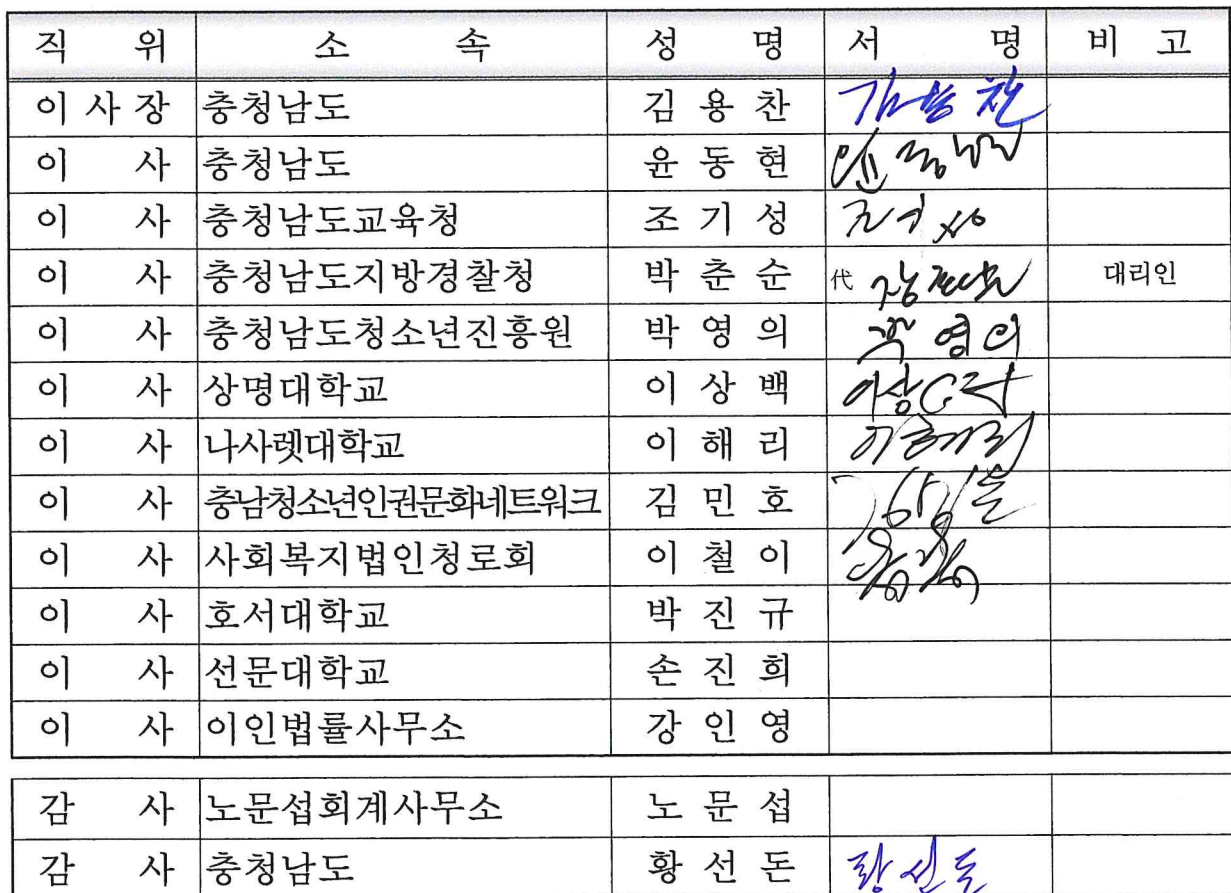 직 위 소 속 성 명 서 명 비 고
이 사 장 충청남도 김 용 찬 김용찬
이 사 충청남도 윤 동 현
이 사 충청남도교육청 조 기 성 조기성
이 사 충청남도지방경찰청 박 춘 순 代 대리인
이 사 충청남도청소년진흥원 박 영 의 박영의
이 사 상명대학교 이 상 백 이상백
이 사 나사렛대학교 이 해 리 이해리
이 사 충남청소년인권문화네트워크 김 민 호
이 사 사회복지법인청로회 이 철 이
이 사 호서대학교 박 진 규
이 사 선문대학교 손 진 희
이 사 이인법률사무소 강 인 영
감 사 노문섭회계사무소 노 문 섭
감 사 충청남도 황 선 돈 황선돈